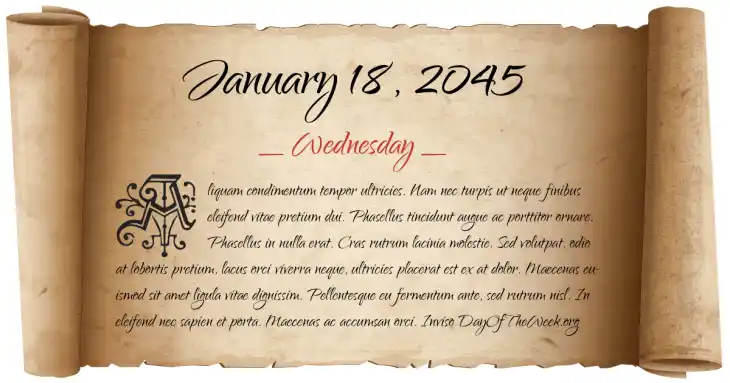 January 18, 2045
_ Wednesday _
Aliquam condimentum tempor ultricies. Nam nec turpis ut neque finibus
eleifend vitae pretium dui. Phasellus tincidunt augue ac porttitor ornare.
Phasellus in nulla erat. Cras rutrum lacinia molestie. Sed volutpat, odio
at lobortis pretium, lacus orci viverra neque, ultricies placerat est ex at dolor. Maecenas eu-
ismod sit amet ligula vitae dignissim. Pellentesque eu fermentum ante, sed rutrum nisl. In
eleifend nec sapien et porta. Maecenas ac accumsan orci. Inviso DayOfTheWeek.org